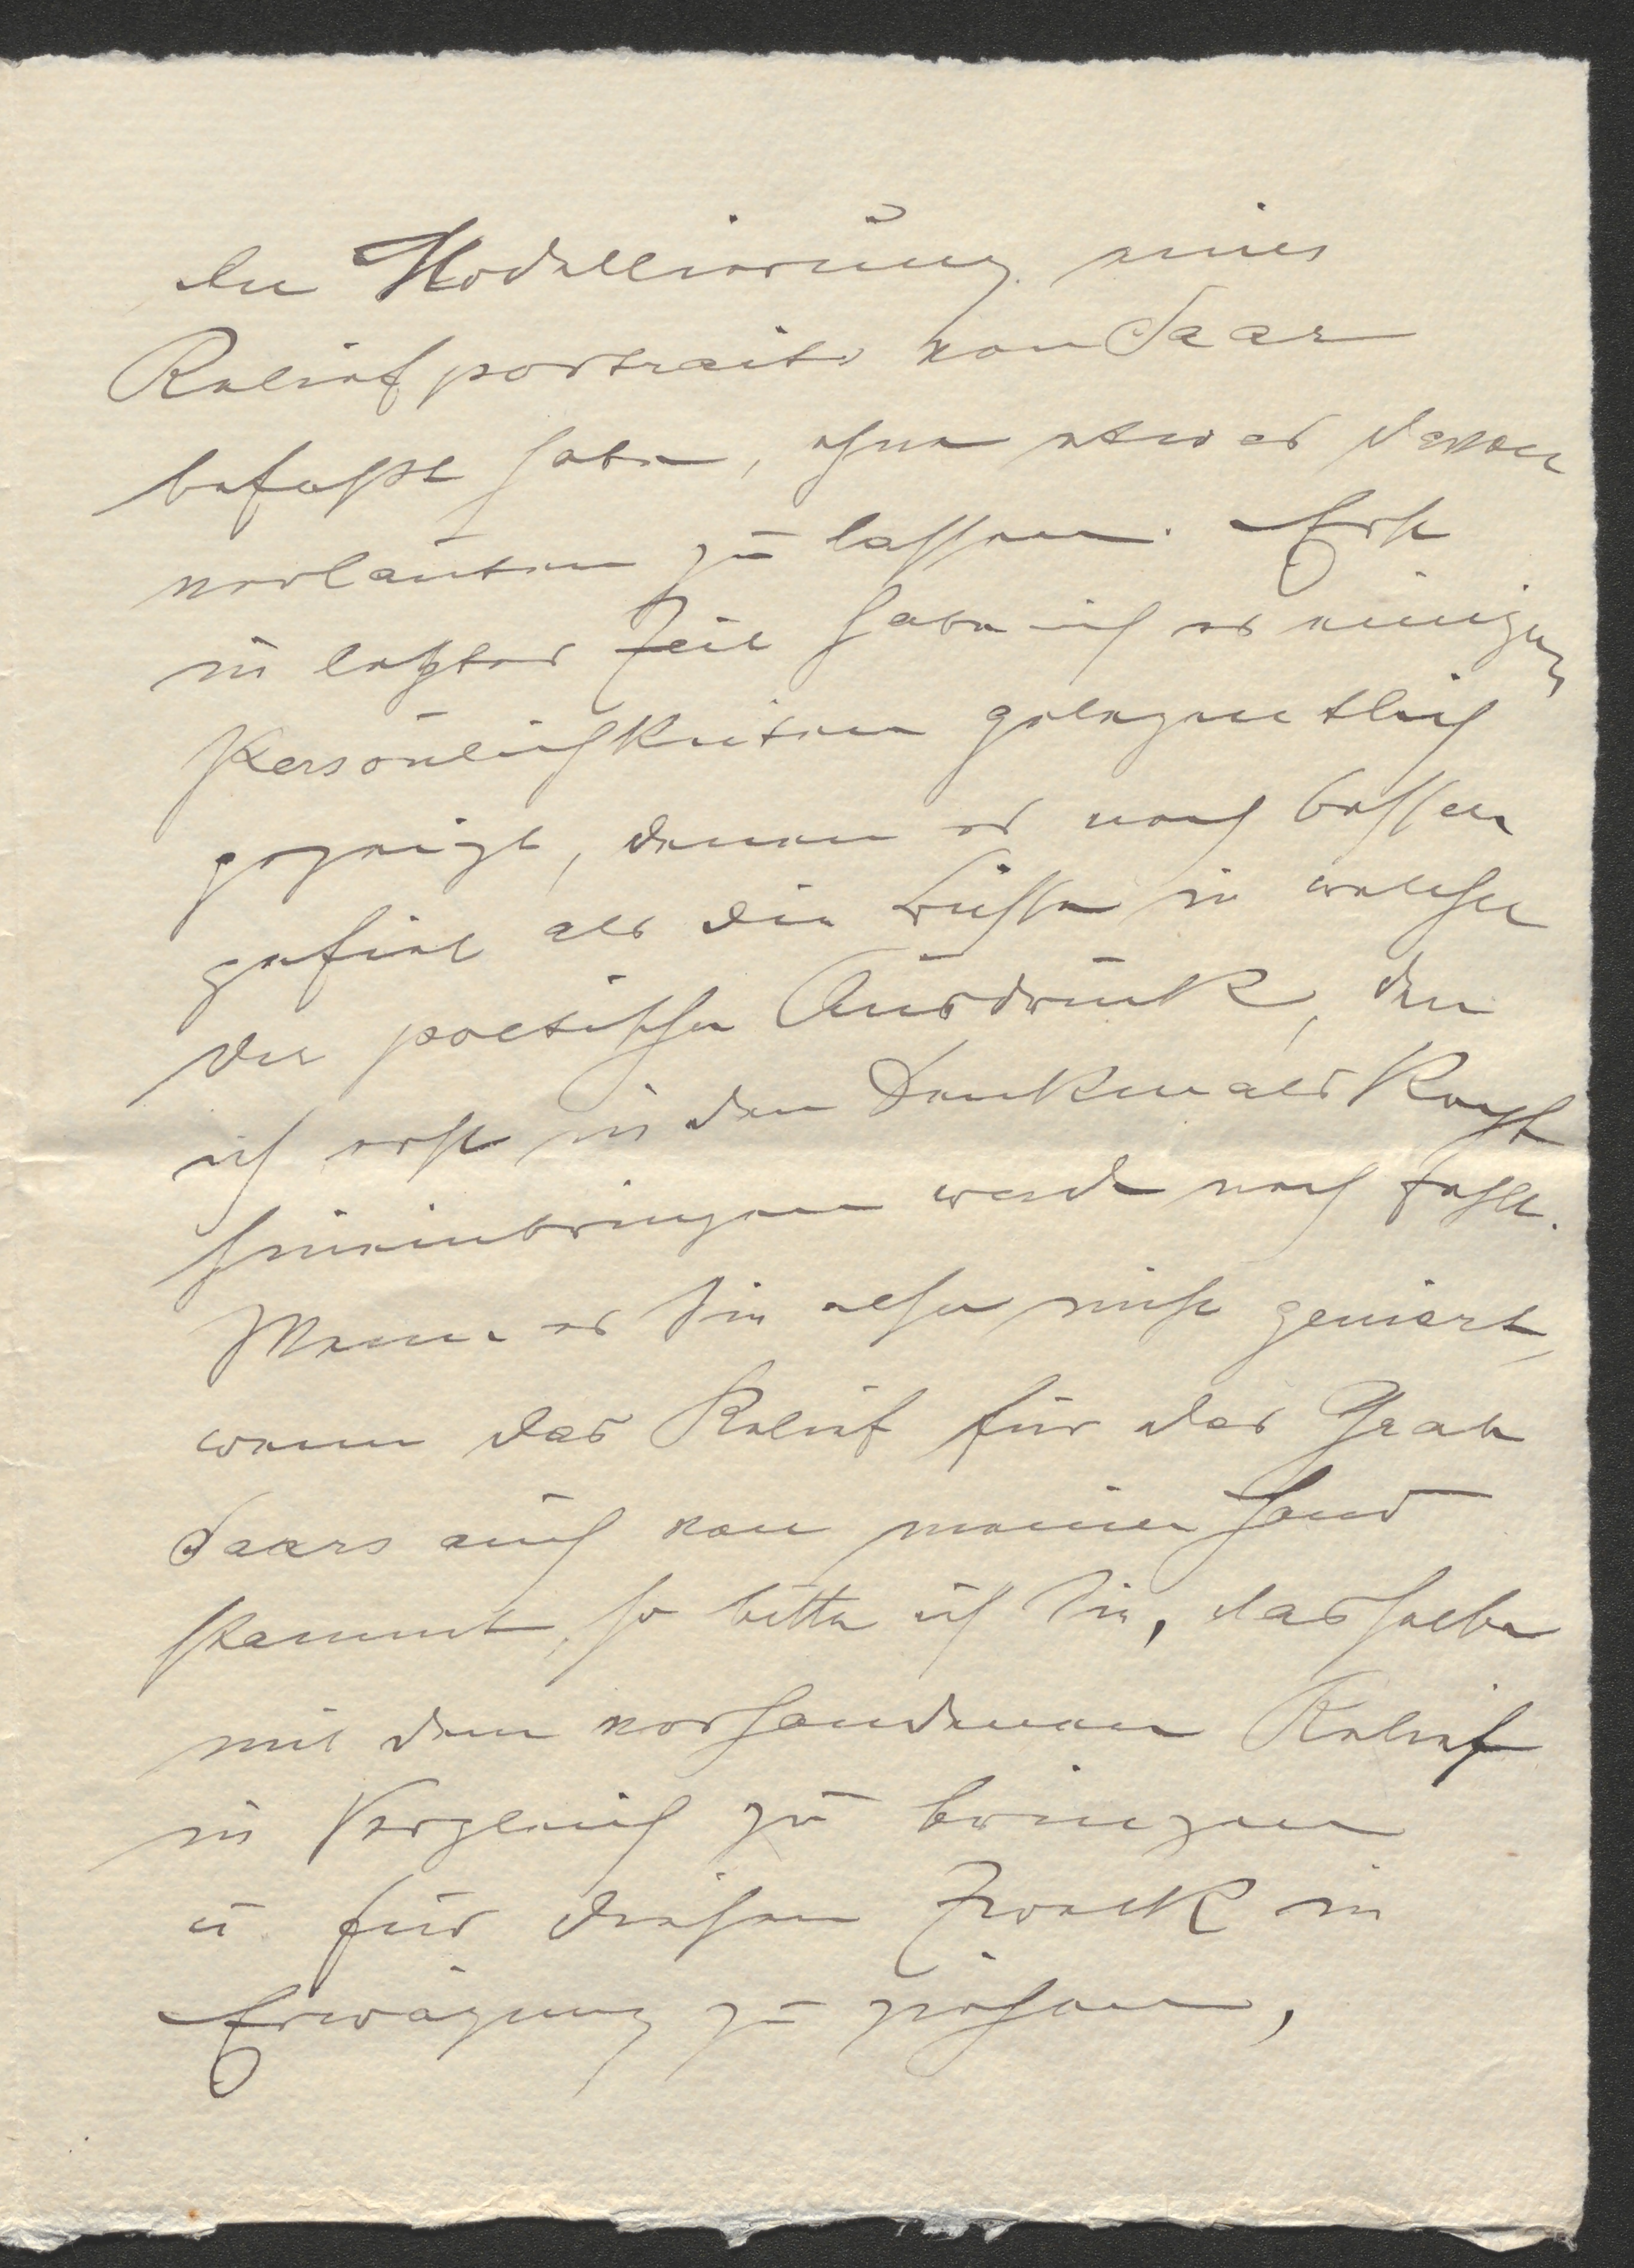 der Modellierung eines
Reliefportraits von Saar
befaßt habe, ohne etwas davon
verlauten zu lassen. Erst
in letzter Zeit habe ich es einigen
Persönlichkeiten gelegentlich
gezeigt, denen es noch besser
gefiel als die Büste in welcher
der poetische Ausdruck, den
ich erst in den Denkmalskopf
hineinbringen werde noch fehlt.
Wenn es Sie also nicht geniert,
wenn das Relief für das Grab
Saars auch von meiner Hand
stammt, so bitte ich Sie, dasselbe
mit dem vorhandenen Relief
in Vergleich zu bringen
u für diesen Zweck in
Erwägung zu ziehen,